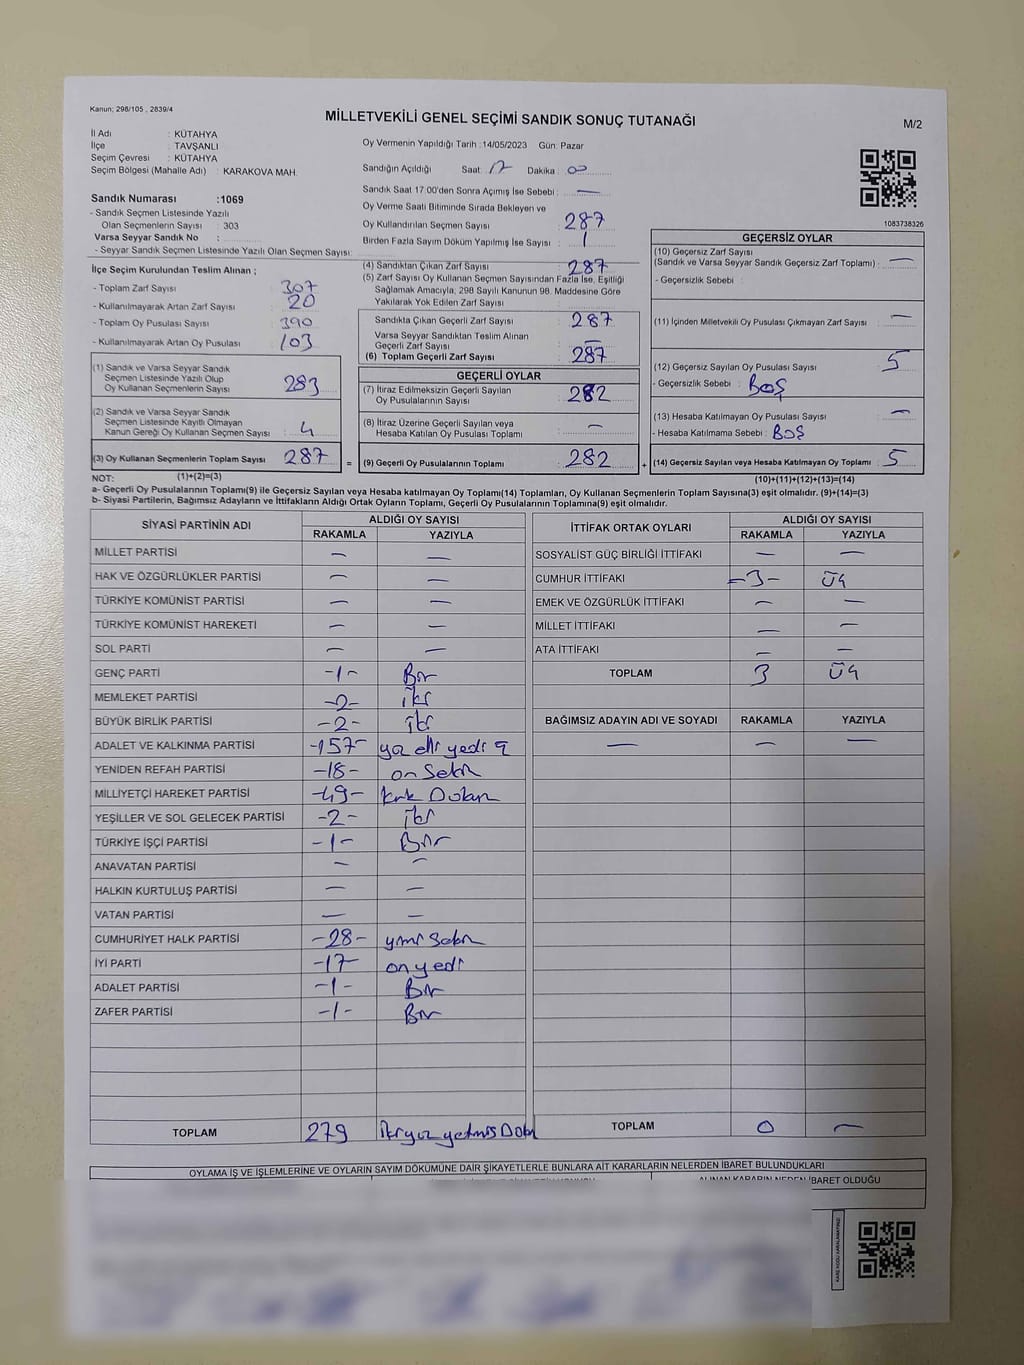 Kanun; 298/105 , 2839/4
MİLLETVEKİLİ GENEL SEÇİMİ SANDIK SONUÇ TUTANAĞI
M/2
İl Adı : KÜTAHYA
İlçe : TAVŞANLI
Seçim Çevresi : KÜTAHYA
Seçim Bölgesi (Mahalle Adı) : KARAKOVA MAH.
Sandık Numarası :1069
- Sandık Seçmen Listesinde Yazılı
Olan Seçmenlerin Sayısı : 303
Varsa Seyyar Sandık No :
- Seyyar Sandık Seçmen Listesinde Yazılı Olan Seçmen Sayısı:
Oy Vermenin Yapıldığı Tarih :14/05/2023 Gün: Pazar
Sandığın Açıldığı Saat: 17 Dakika : 00
Sandık Saat 17.00'den Sonra Açımış İse Sebebi : —
Oy Verme Saati Bitiminde Sırada Bekleyen ve
Oy Kullandırılan Seçmen Sayısı : 287
Birden Fazla Sayım Döküm Yapılmış İse Sayısı : 1
1083738326
İlçe Seçim Kurulundan Teslim Alınan ;
- Toplam Zarf Sayısı : 307
- Kullanılmayarak Artan Zarf Sayısı : 20
- Toplam Oy Pusulası Sayısı : 390
- Kullanılmayarak Artan Oy Pusulası : 103
(1) Sandık ve Varsa Seyyar Sandık
Seçmen Listesinde Yazılı Olup
Oy Kullanan Seçmenlerin Sayısı : 283
(2) Sandık ve Varsa Seyyar Sandık
Seçmen Listesinde Kayıtlı Olmayan
Kanun Gereği Oy Kullanan Seçmen Sayısı : 4
(3) Oy Kullanan Seçmenlerin Toplam Sayısı : 287 =
(4) Sandıktan Çıkan Zarf Sayısı : 287
(5) Zarf Sayısı Oy Kullanan Seçmen Sayısından Fazla İse, Eşitliği
Sağlamak Amacıyla, 298 Sayılı Kanunun 98. Maddesine Göre
Yakılarak Yok Edilen Zarf Sayısı :
Sandıkta Çıkan Geçerli Zarf Sayısı : 287
Varsa Seyyar Sandıktan Teslim Alınan
Geçerli Zarf Sayısı : —
(6) Toplam Geçerli Zarf Sayısı : 287
GEÇERLİ OYLAR
(7) İtiraz Edilmeksizin Geçerli Sayılan
Oy Pusulalarının Sayısı : 282
(8) İtiraz Üzerine Geçerli Sayılan veya
Hesaba Katılan Oy Pusulası Toplamı : —
(9) Geçerli Oy Pusulalarının Toplamı : 282 +
GEÇERSİZ OYLAR
(10) Geçersiz Zarf Sayısı
(Sandık ve Varsa Seyyar Sandık Geçersiz Zarf Toplamı) : —
- Geçersizlik Sebebi :
(11) İçinden Milletvekili Oy Pusulası Çıkmayan Zarf Sayısı : —
(12) Geçersiz Sayılan Oy Pusulası Sayısı : 5
- Geçersizlik Sebebi : BOŞ
(13) Hesaba Katılmayan Oy Pusulası Sayısı : —
- Hesaba Katılmama Sebebi : BOŞ
(14) Geçersiz Sayılan veya Hesaba Katılmayan Oy Toplamı : 5
NOT: (1)+(2)=(3)
(10)+(11)+(12)+(13)=(14)
a- Geçerli Oy Pusulalarının Toplamı(9) ile Geçersiz Sayılan veya Hesaba katılmayan Oy Toplamı(14) Toplamları, Oy Kullanan Seçmenlerin Toplam Sayısına(3) eşit olmalıdır. (9)+(14)=(3)
b- Siyasi Partilerin, Bağımsız Adayların ve İttifakların Aldığı Ortak Oyların Toplamı, Geçerli Oy Pusulalarının Toplamına(9) eşit olmalıdır.
SİYASİ PARTİNİN ADI ALDIĞI OY SAYISI
RAKAMLA YAZIYLA
MİLLET PARTİSİ — —
HAK VE ÖZGÜRLÜKLER PARTİSİ — —
TÜRKİYE KOMÜNİST PARTİSİ — —
TÜRKİYE KOMÜNİST HAREKETİ — —
SOL PARTİ — —
GENÇ PARTİ -1- Bir
MEMLEKET PARTİSİ -2- iki
BÜYÜK BİRLİK PARTİSİ -2- iki
ADALET VE KALKINMA PARTİSİ -157- yüz elli yedi
YENİDEN REFAH PARTİSİ -18- on Sekiz
MİLLİYETÇİ HAREKET PARTİSİ -49- kırk Dokuz
YEŞİLLER VE SOL GELECEK PARTİSİ -2- iki
TÜRKİYE İŞÇİ PARTİSİ -1- Bir
ANAVATAN PARTİSİ — —
HALKIN KURTULUŞ PARTİSİ — —
VATAN PARTİSİ — —
CUMHURİYET HALK PARTİSİ -28- yirmi Sekiz
İYİ PARTİ -17- on yedi
ADALET PARTİSİ -1- Bir
ZAFER PARTİSİ -1- Bir
TOPLAM 279 ikiyüz yetmiş Dokuz
İTTİFAK ORTAK OYLARI ALDIĞI OY SAYISI
RAKAMLA YAZIYLA
SOSYALİST GÜÇ BİRLİĞİ İTTİFAKI — —
CUMHUR İTTİFAKI -3- Üç
EMEK VE ÖZGÜRLÜK İTTİFAKI — —
MİLLET İTTİFAKI — —
ATA İTTİFAKI — —
TOPLAM 3 Üç
BAĞIMSIZ ADAYIN ADI VE SOYADI RAKAMLA YAZIYLA
— — —
TOPLAM 0 —
OYLAMA İŞ VE İŞLEMLERİNE VE OYLARIN SAYIM DÖKÜMÜNE DAİR ŞİKAYETLERLE BUNLARA AİT KARARLARIN NELERDEN İBARET BULUNDUKLARI
ALINAN KARARIN NEDEN İBARET OLDUĞU
KARE KODU KARALAMAYINIZ!